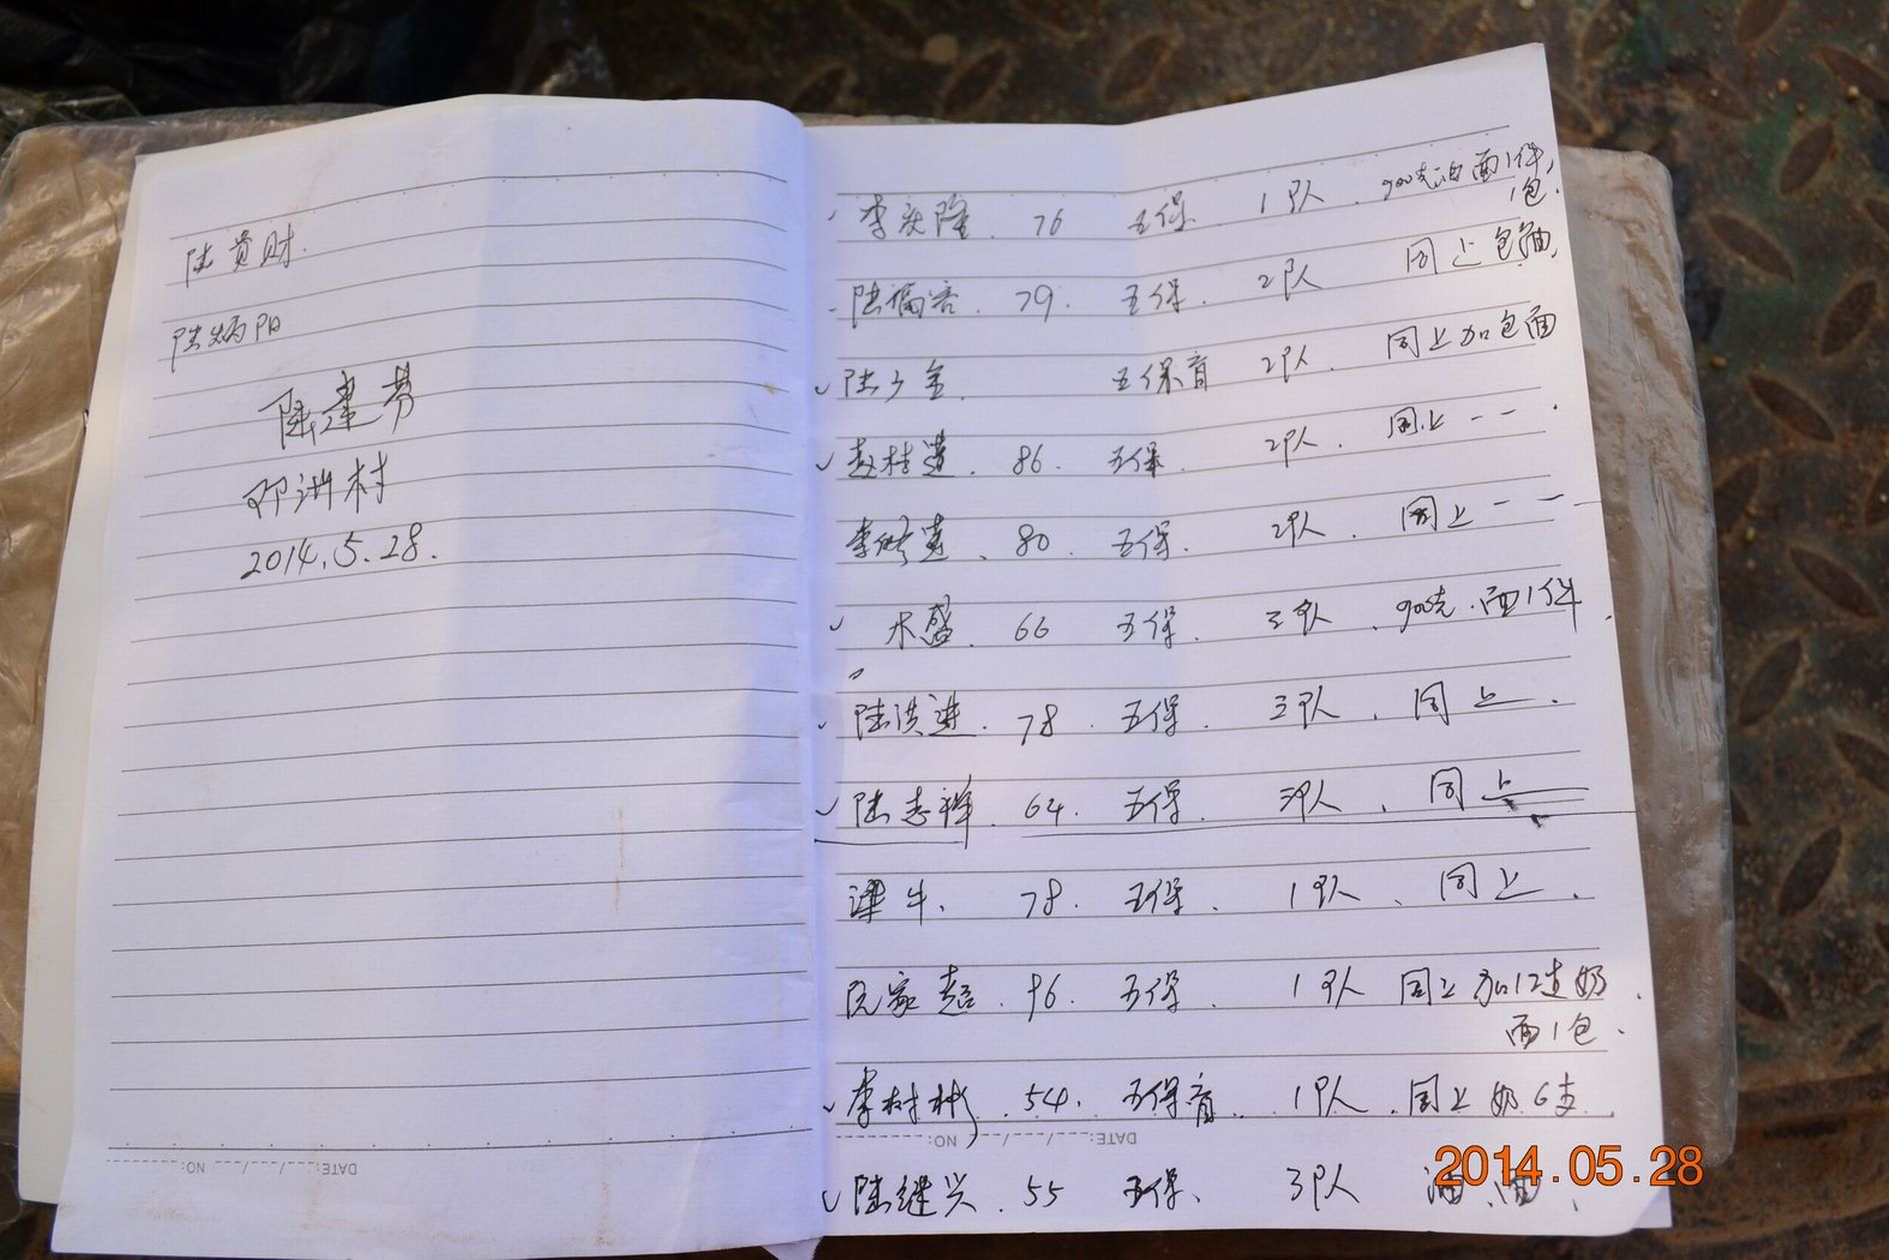 陆贵财.
陆炳阳
陆建芳
邓洪村
2014.5.28.
李庆隆. 76 五保 1队. 900克油 面1件,
1包.
陆 79. 五保. 2队 同上包面
陆少金. 五保盲 2队. 同上加包面
赵桂莲. 86. 五保. 2队. 同上 --.
李 莲. 80. 五保. 2队. 同上 ---
木盛. 66 五保. 三队. 900克.面1件.
陆洪进. 78. 五保. 三队. 同上.
陆志祥. 64. 五保. 3队. 同上
谭牛. 78. 五保. 1队. 同上.
阮家超. 96. 五保. 1队 同上加 奶.
面1包.
李树彬. 54. 五保盲. 1队. 同上奶6支.
陆继兴. 55 五保. 3队 油.面.
DATE:___/___/___ NO:
DATE:___/___/___ NO:
2014.05.28